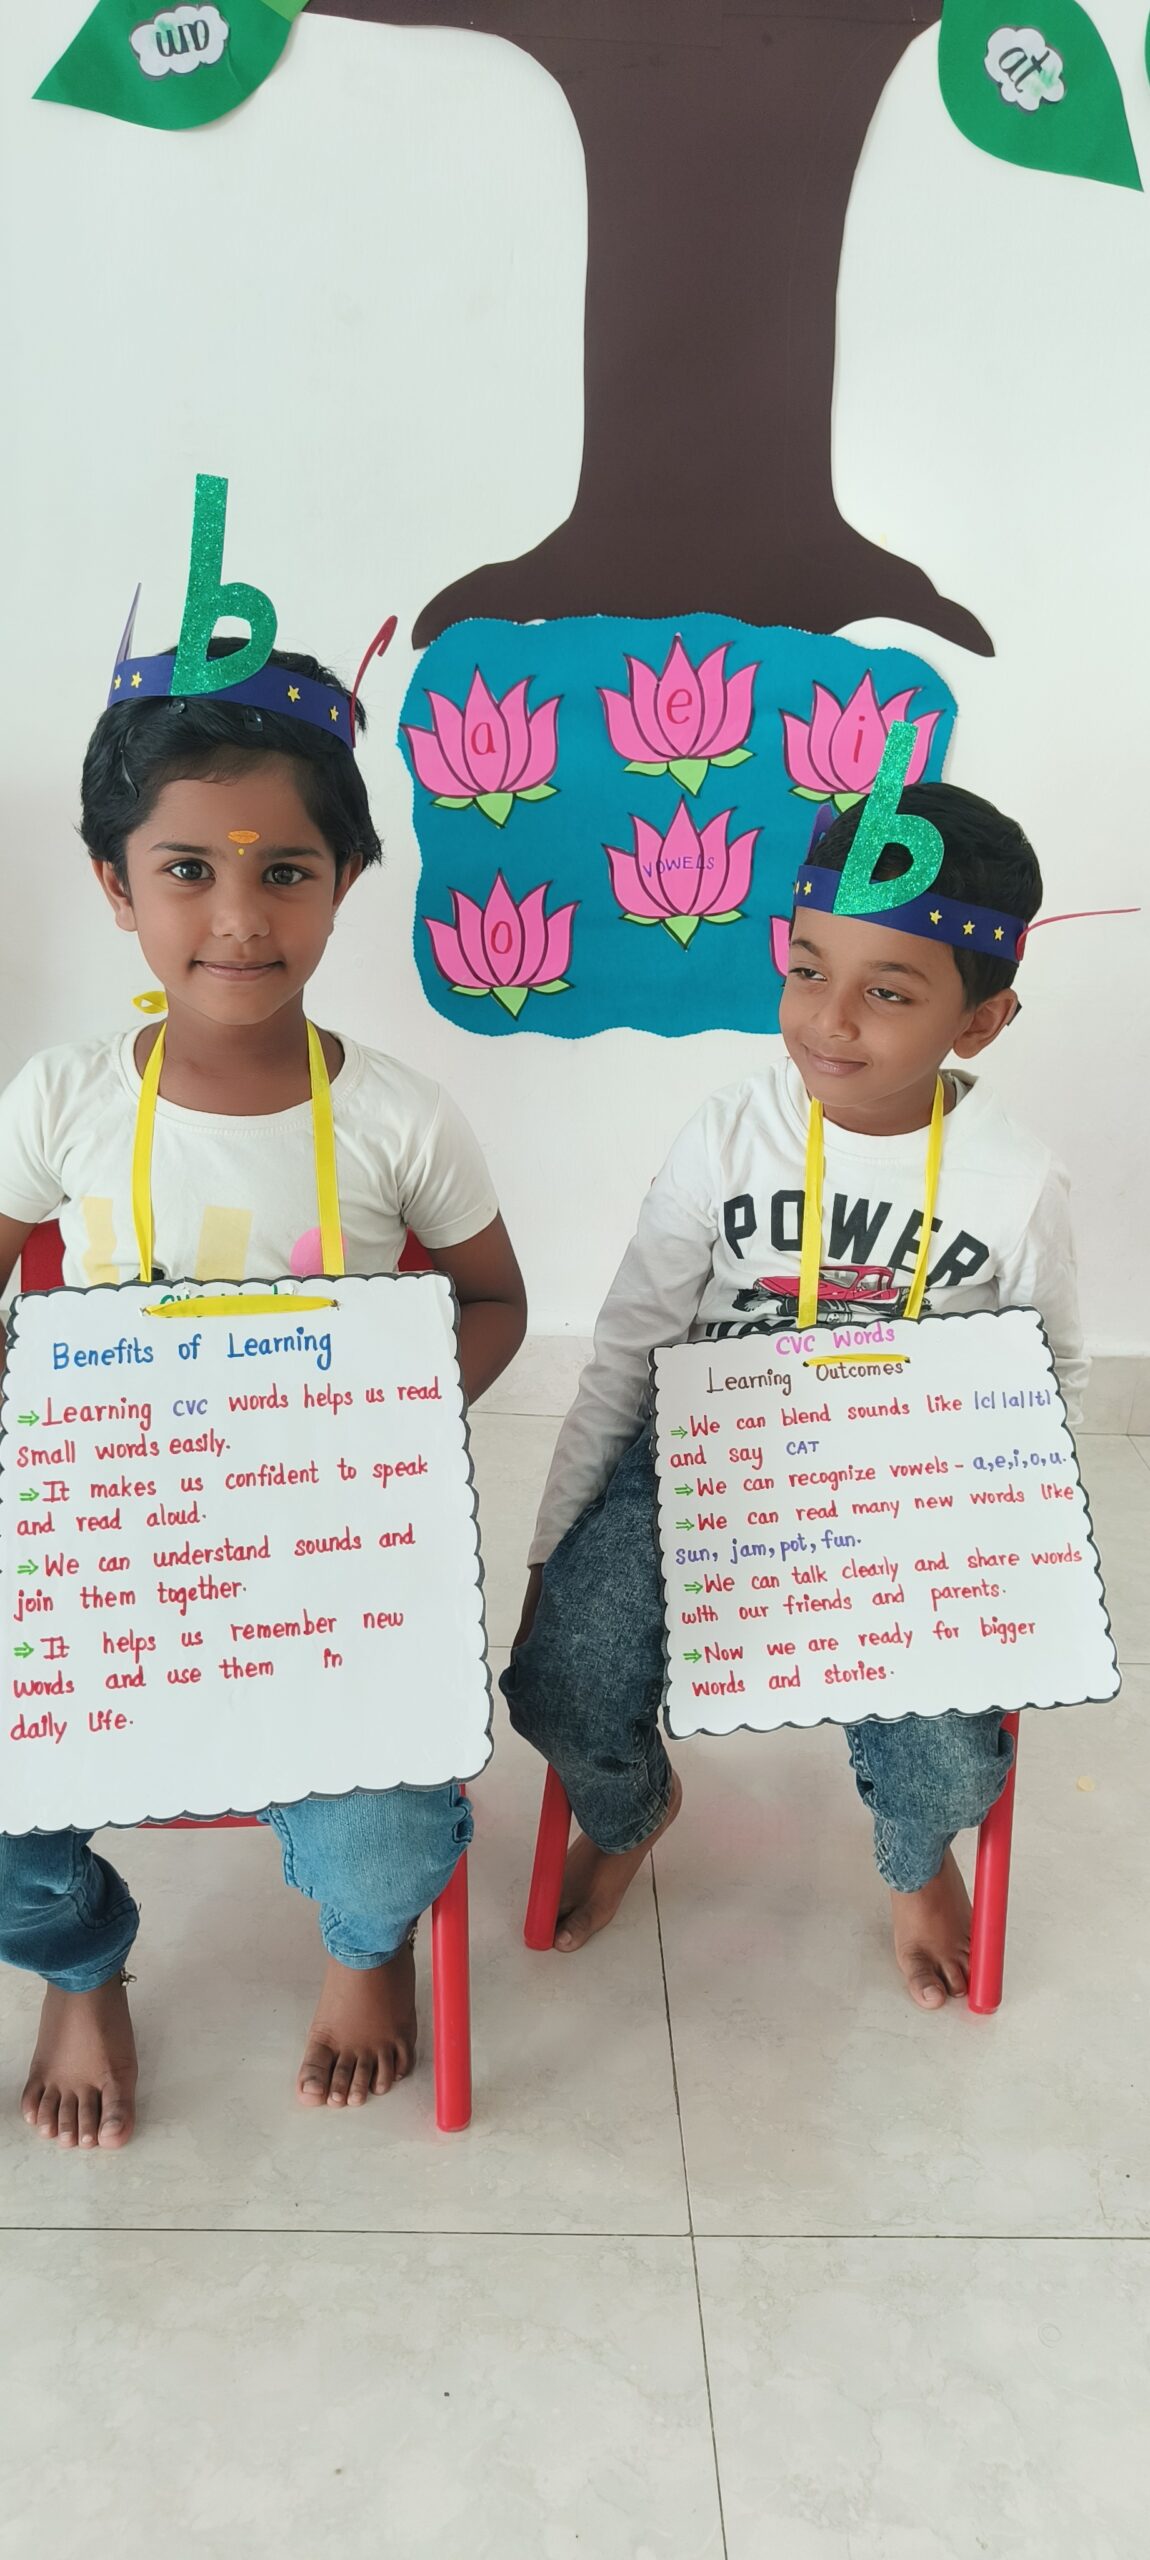 an
at
b
a
e
i
VOWELS
o
b
POWER
Benefits of Learning
⇒Learning CVC words helps us read
small words easily.
⇒It makes us confident to speak
and read aloud.
⇒We can understand sounds and
join them together.
⇒It helps us remember new
words and use them in
daily life.
CVC Words
Learning "Outcomes"
⇒We can blend sounds like |c| |a| |t|
and say CAT
⇒We can recognize vowels - a,e,i,o,u.
⇒We can read many new words like
sun, jam, pot, fun.
⇒We can talk clearly and share words
with our friends and parents.
⇒Now we are ready for bigger
words and stories.